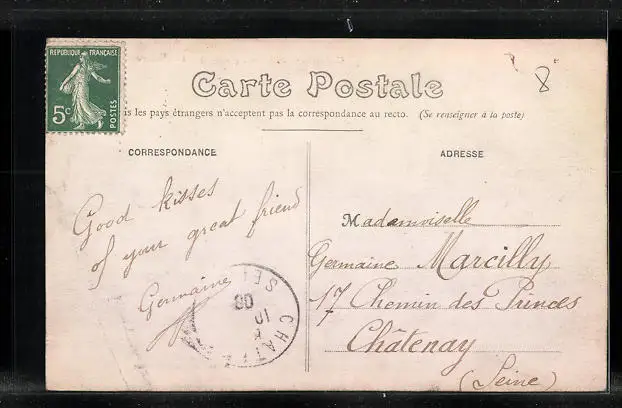 RÉPUBLIQUE FRANÇAISE
5c
POSTES
8
Carte Postale
is les pays étrangers n'acceptent pas la correspondance au recto. (Se renseigner à la poste)
CORRESPONDANCE
Good kisses
of your great friend
Germaine
CHATE
SEI
10
08
ADRESSE
Mademoiselle
Germaine Marcilly
17 Chemin des Princes
Châtenay
(Seine)